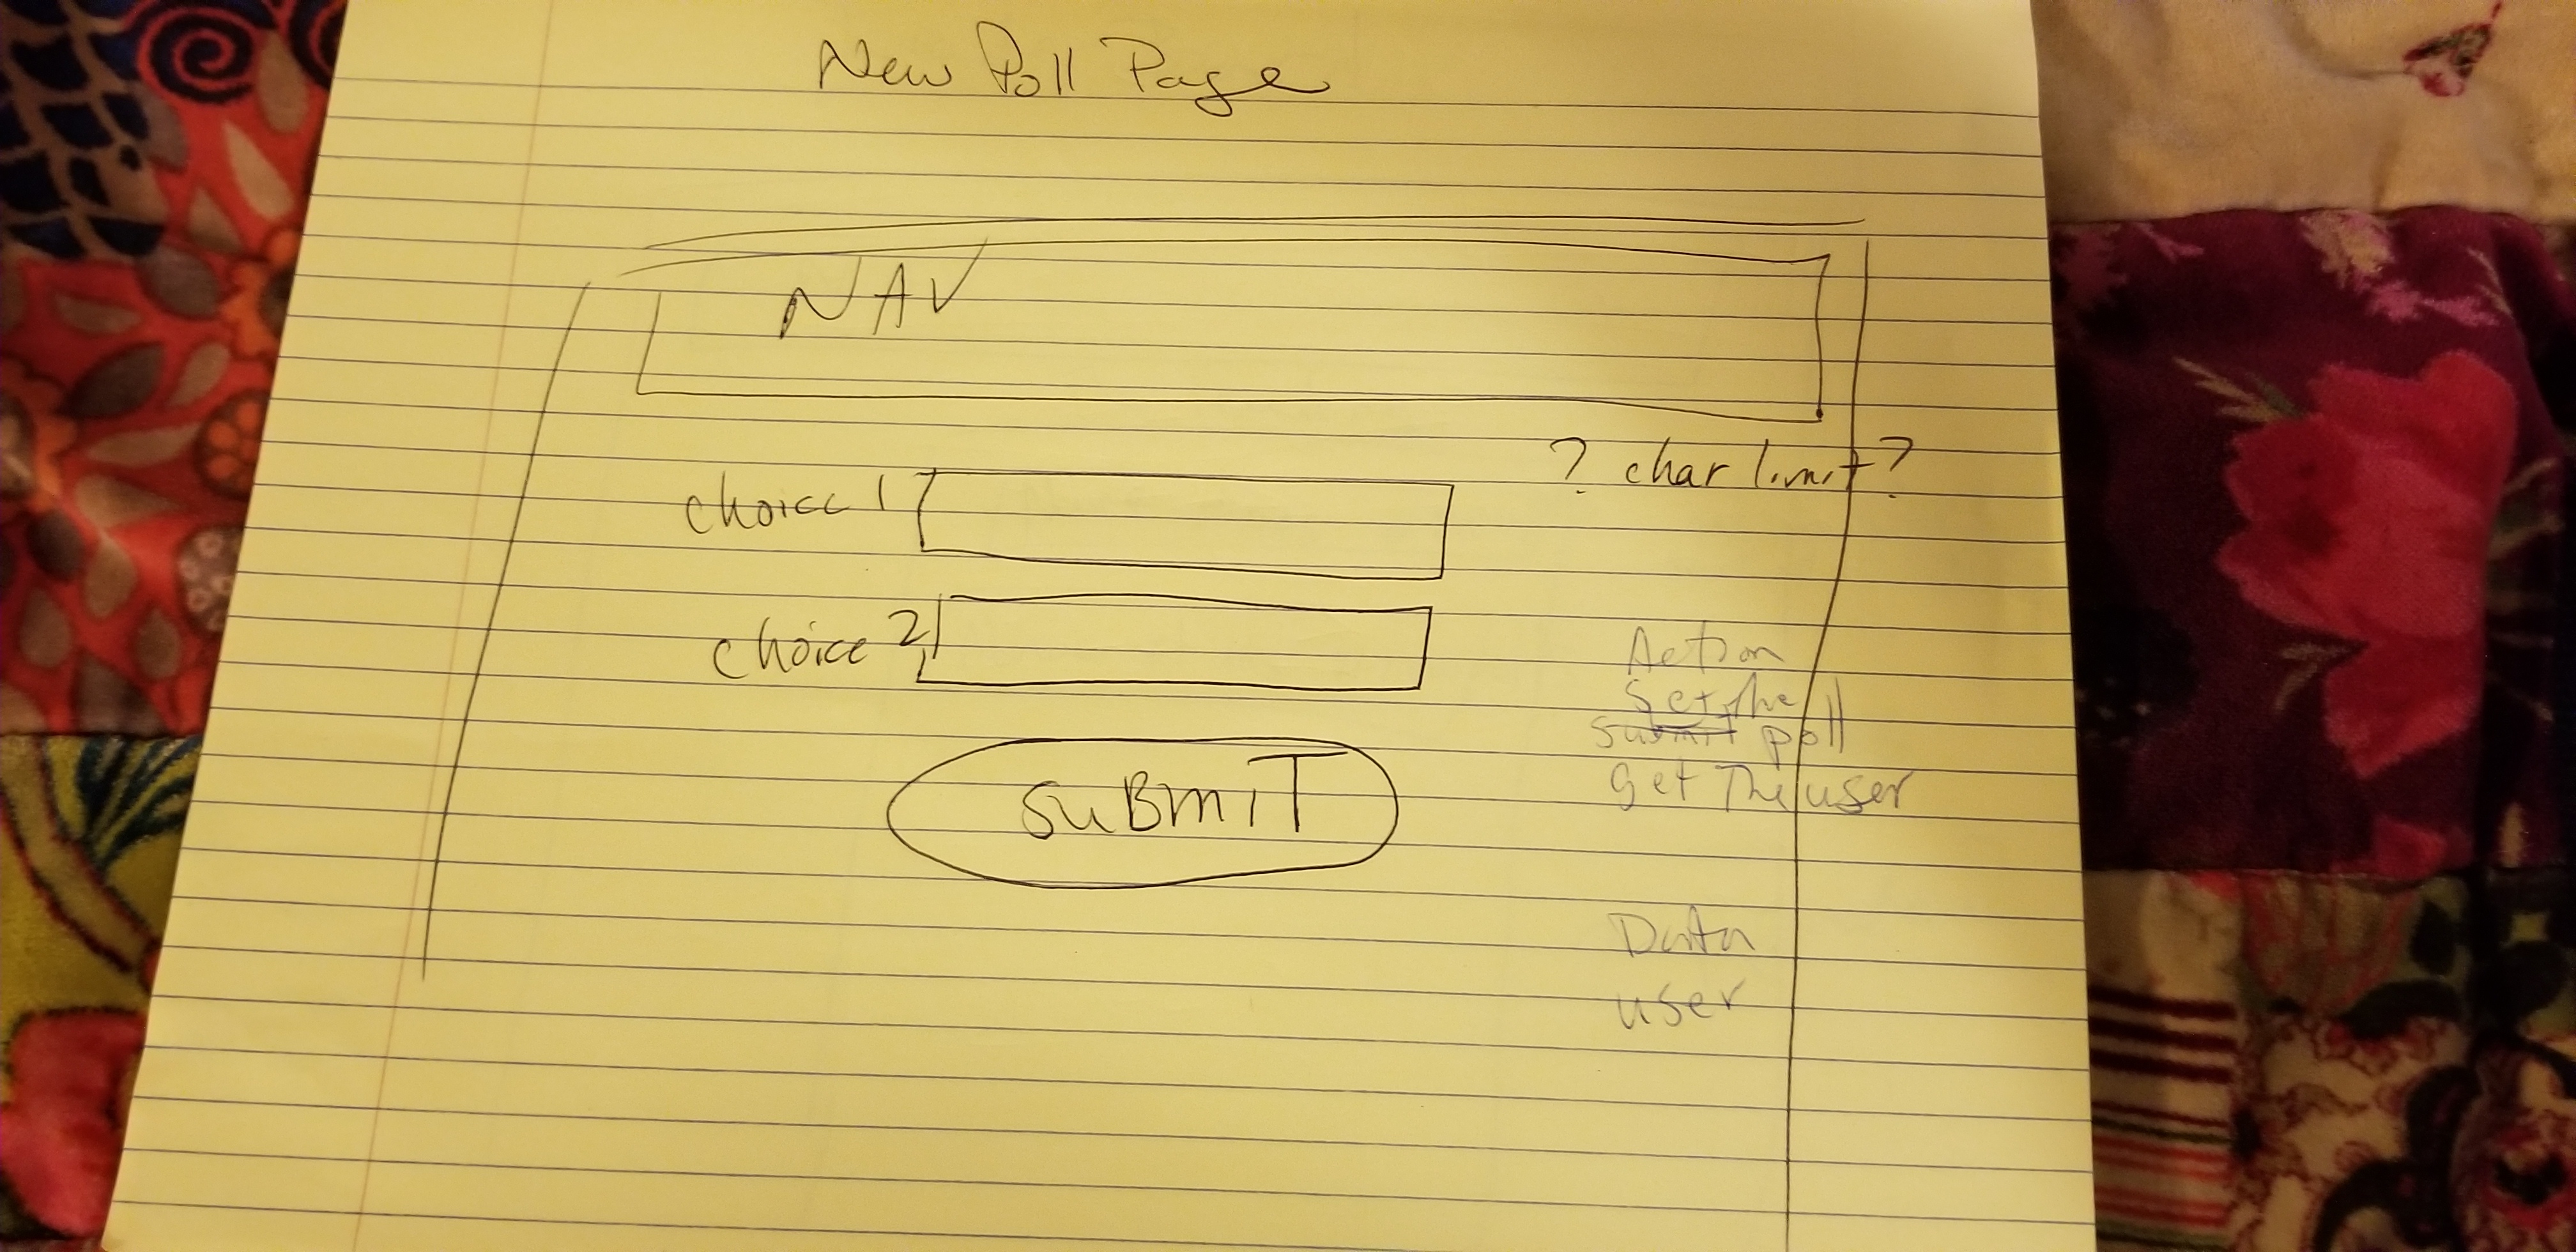 New Poll Page
NAV
? char limit?
choice 1
choice 2
Action
Set the
submit poll
get The user
SUBMIT
Data
user